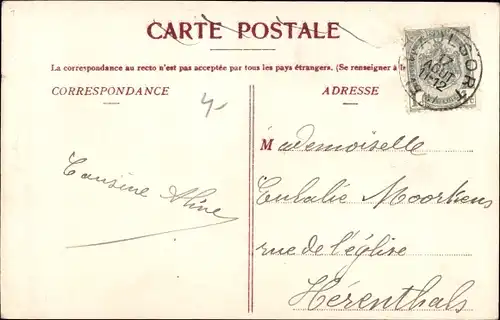 CARTE POSTALE
La correspondance au recto n'est pas acceptée par tous les pays étrangers. (Se renseigner à
CORRESPONDANCE
ADRESSE
4-
17
AOUT
11-12
Mademoiselle
Eulalie Moorkens
rue de l'église
Hérenthals
Cousine Aline